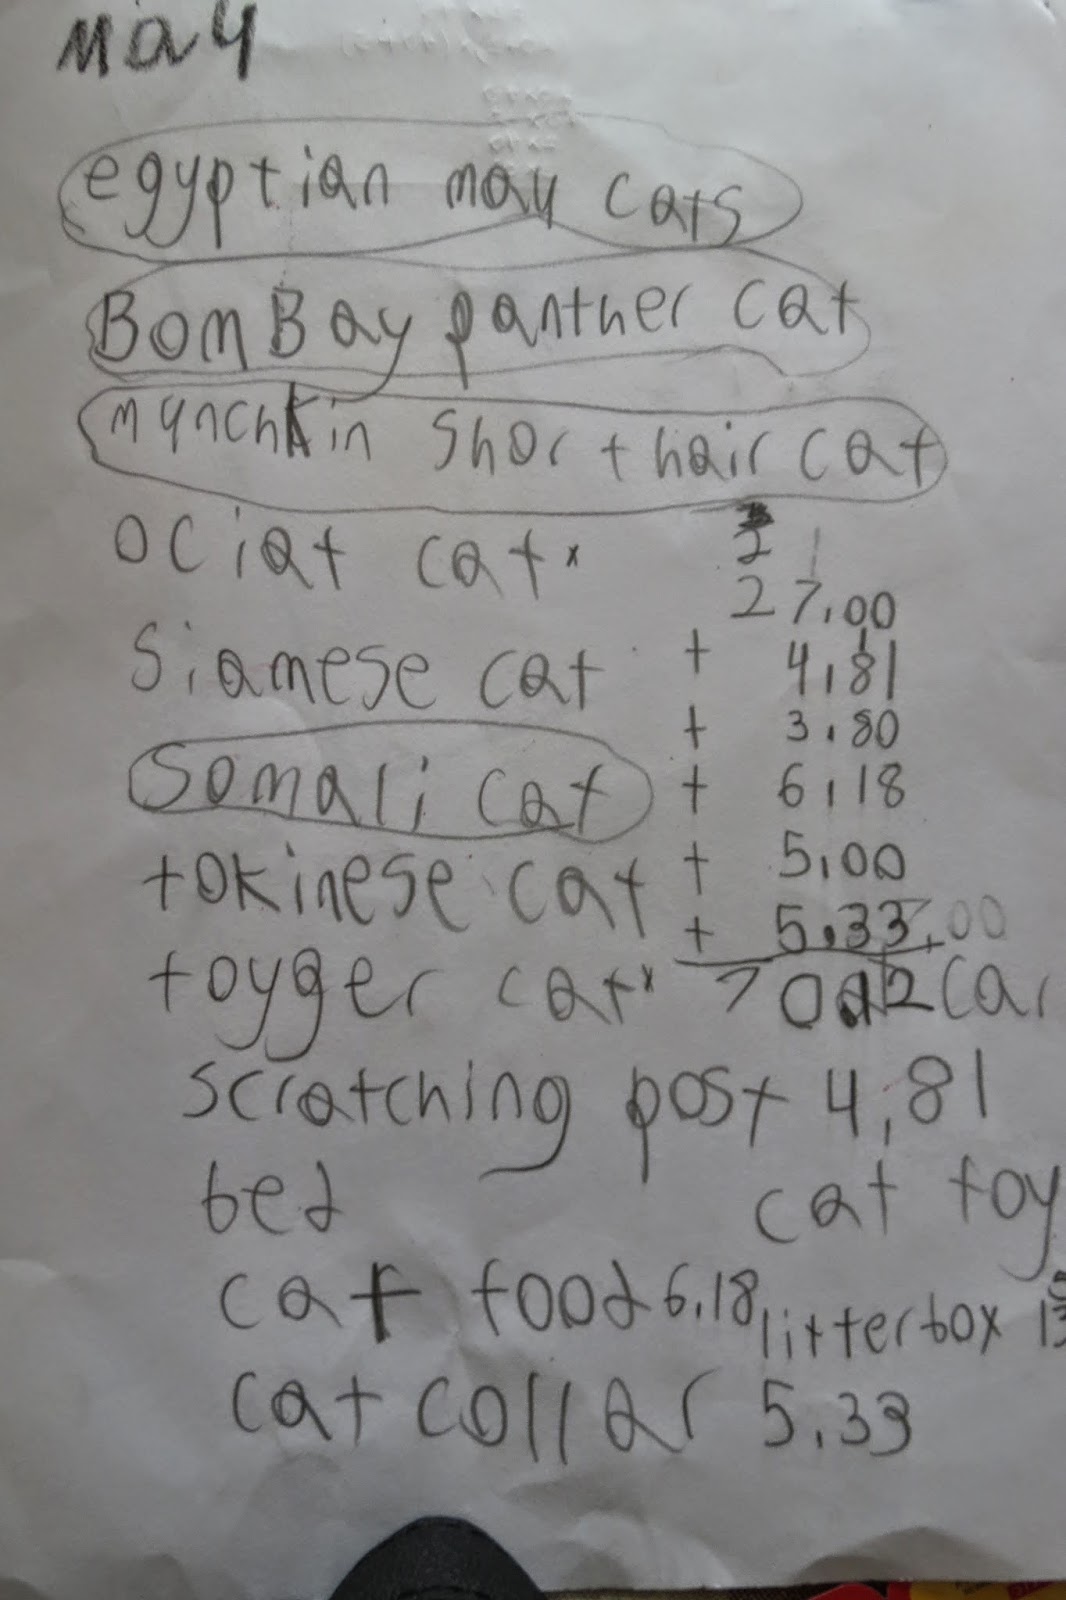 may
egyptian may cats
BomBay panther cat
munchkin short hair cat
ociat cat x
2 1
27.00
siamese cat + 4.81
+ 3.80
somali cat + 6.18
tokinese cat + 5.00
+ 5.33
toyger cat x
scratching post 4.81
bed cat toy
cat food 6.18 litterbox
cat collar 5.33